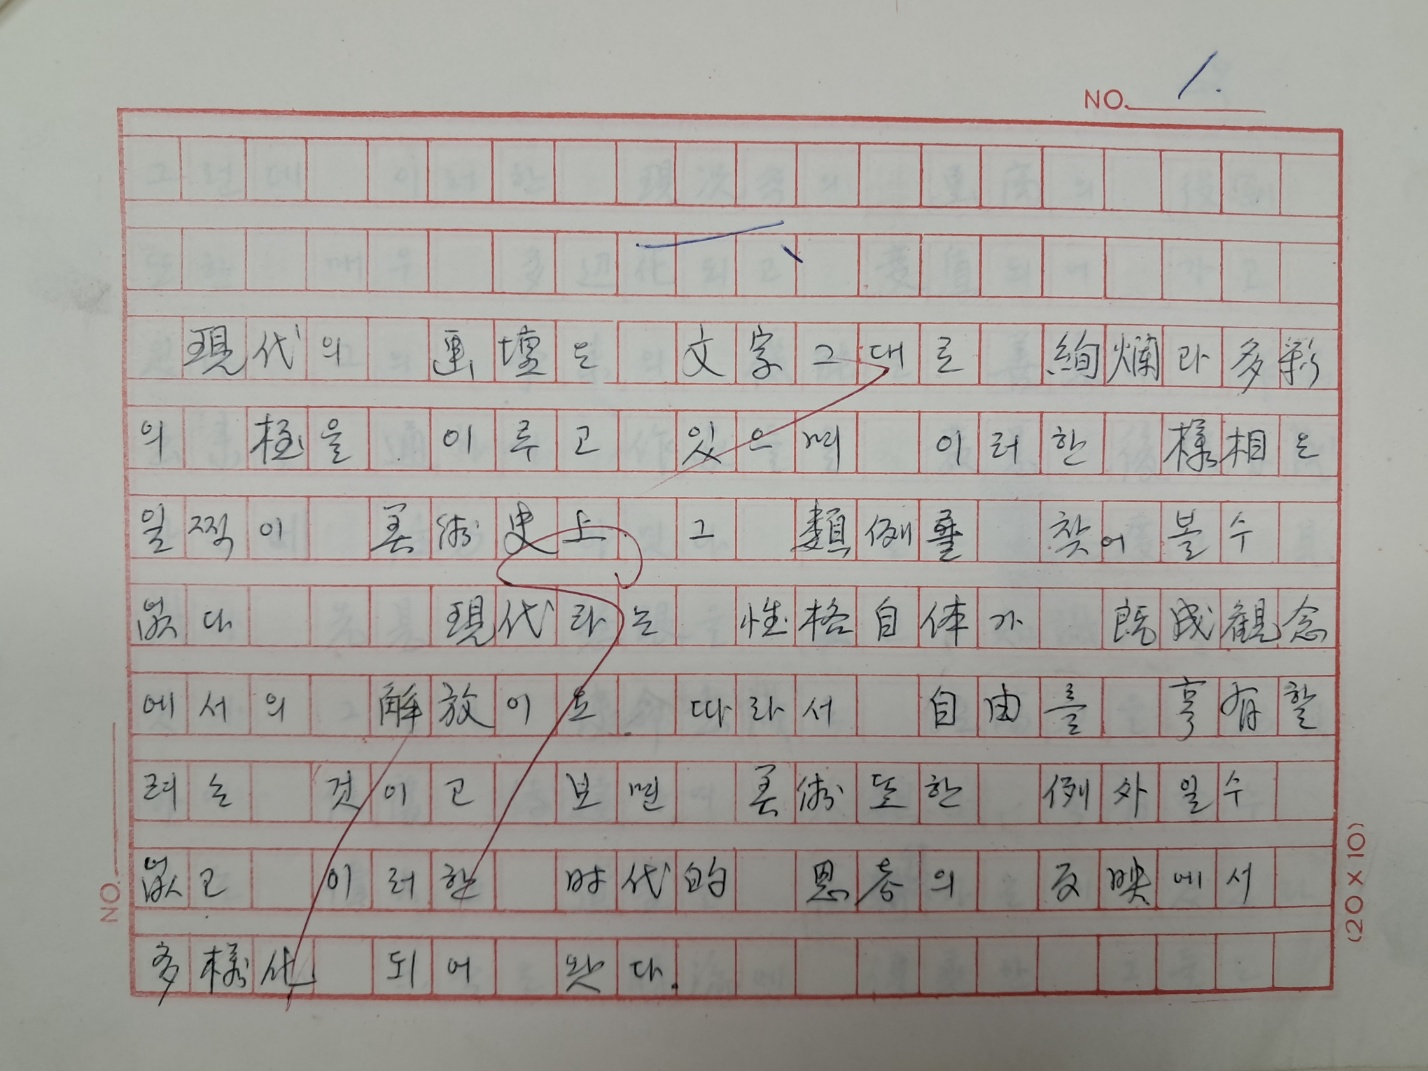 NO. 1.
現代의 畫壇은 文字 그대로 絢爛과 多彩
의 極을 이루고 있으며 이러한 樣相은
일찍이 美術史上 그 類例를 찾어 볼수
없다 現代라는 性格自体가 旣成観念
에서의 解放이요 따라서 自由를 享有할
려는 것이고 보면 美術또한 例外일수
없고 이러한 时代的 思考의 反映에서
多樣化 되어 왔다.
NO.
(20×10)